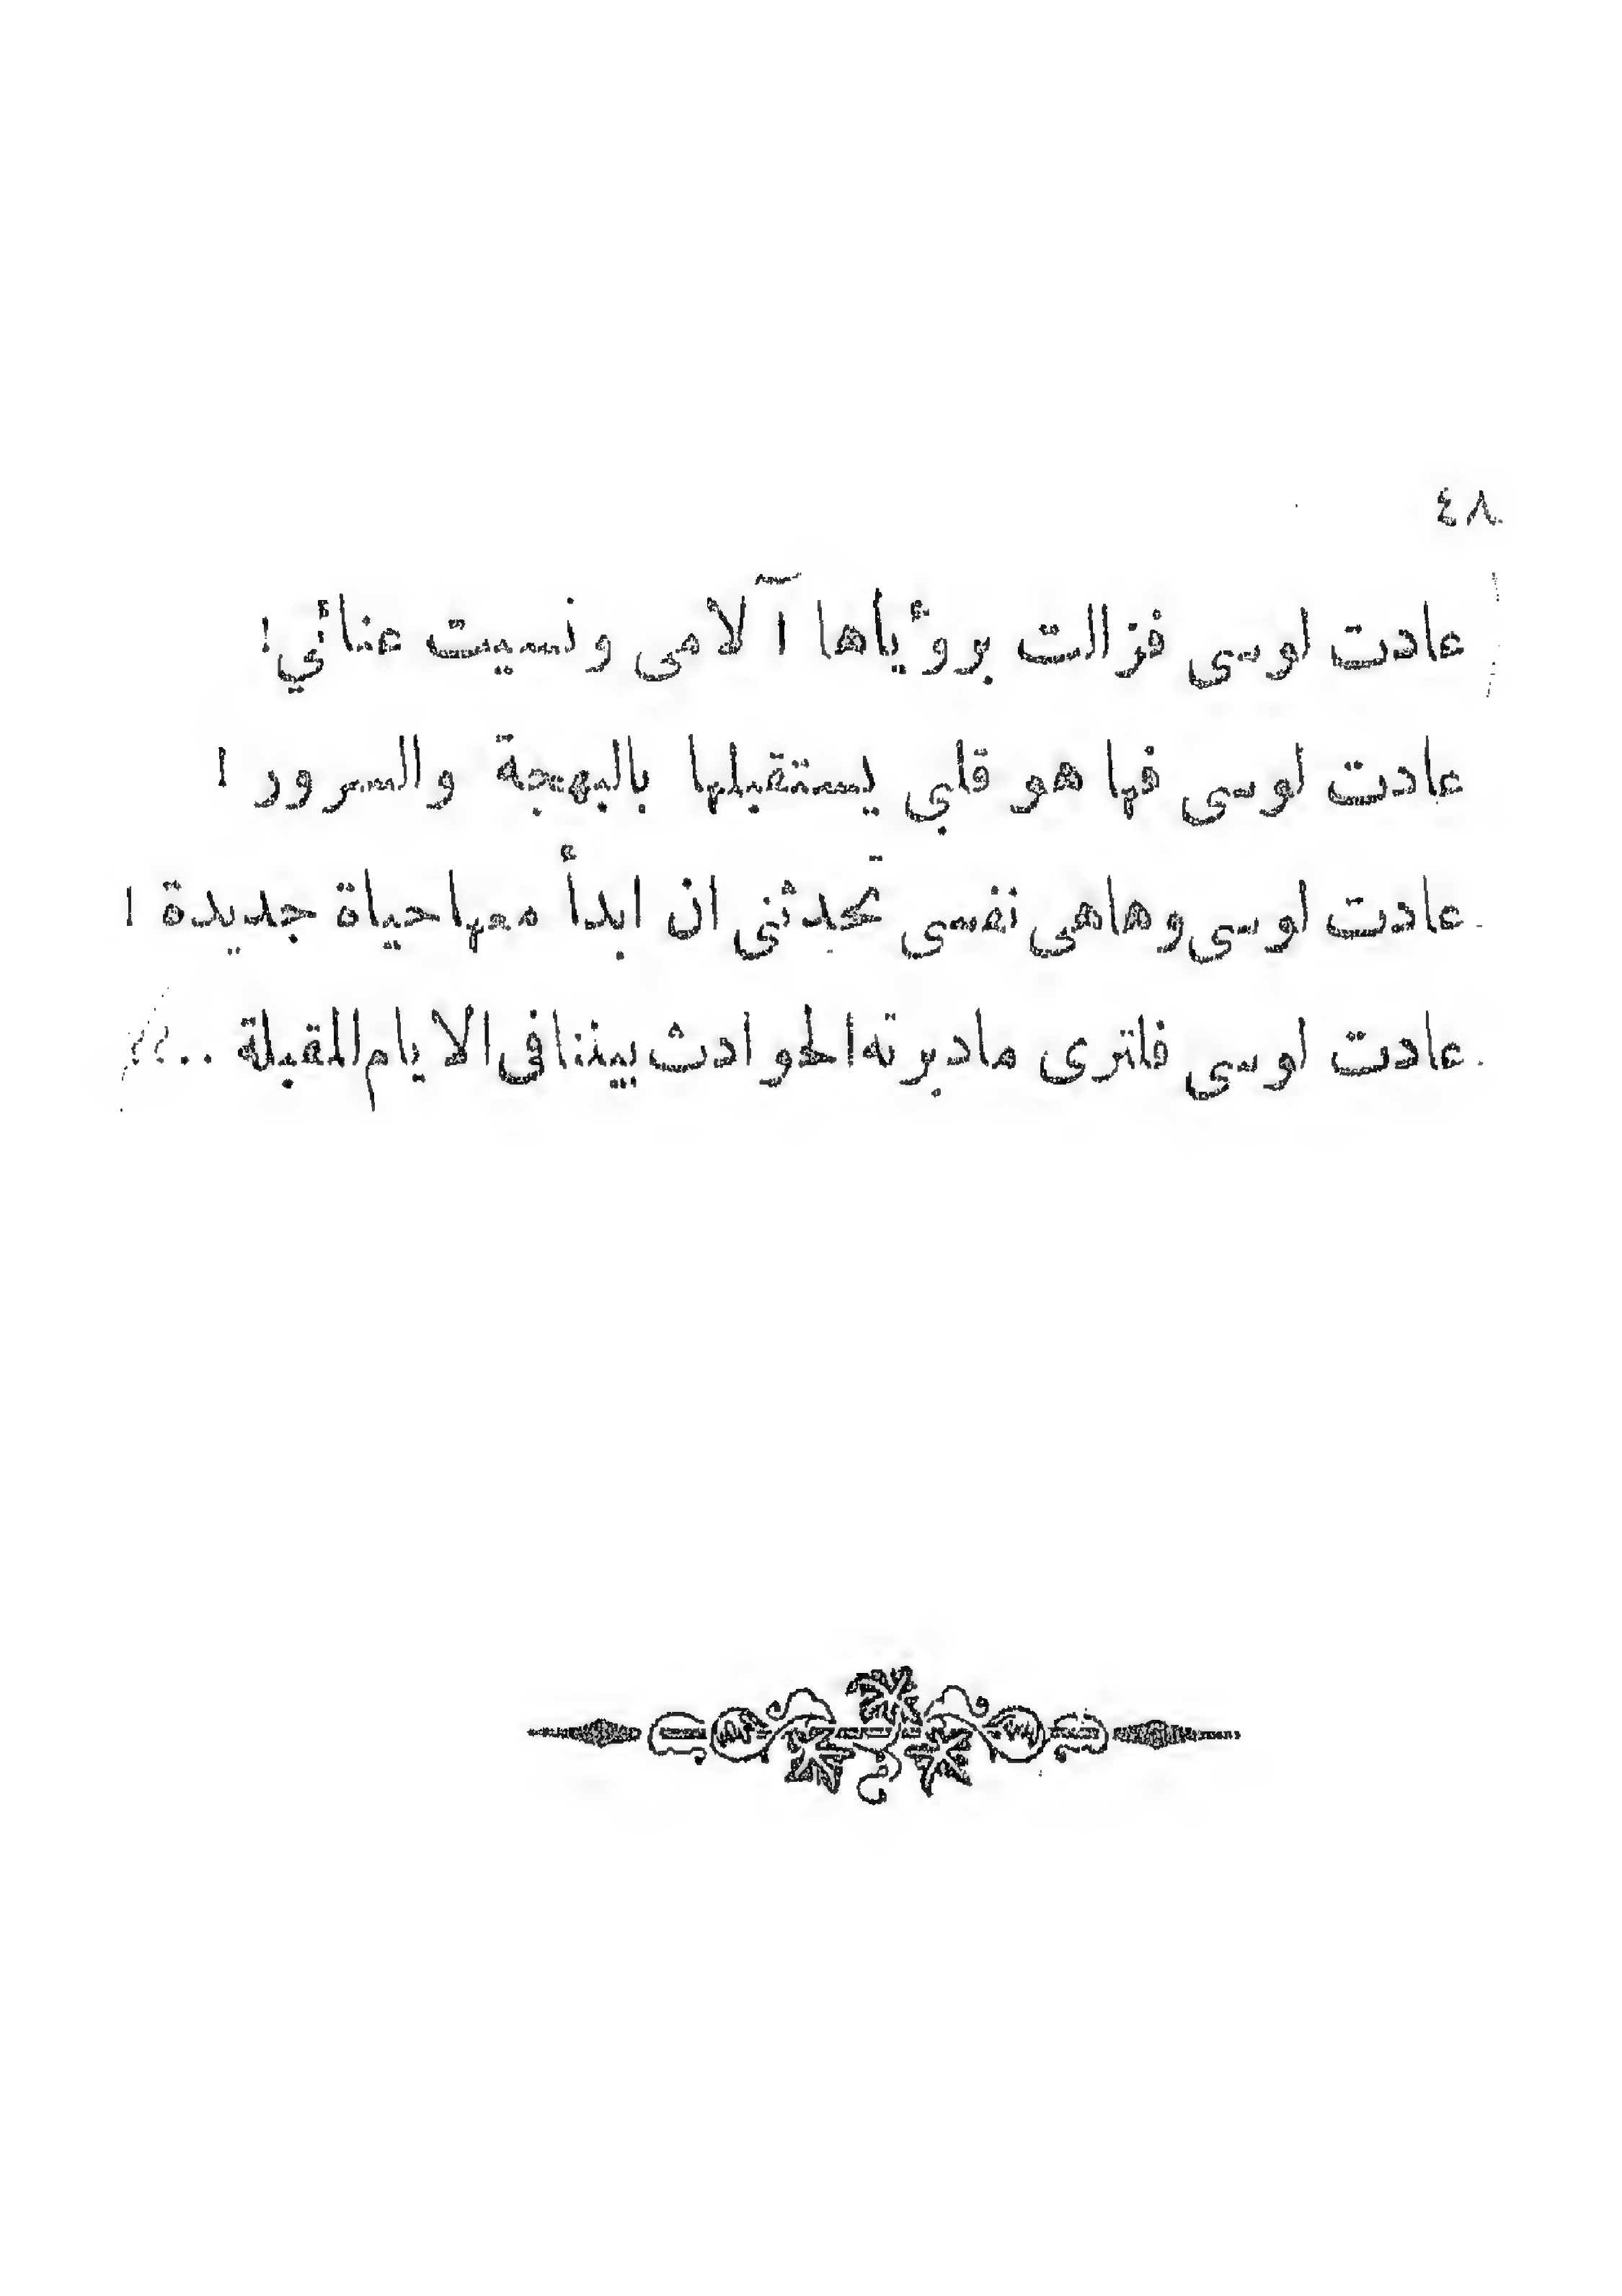 ٤٨
عادت لوسى فزالت برؤياها آلامى ونسيت عنائي!
عادت لوسى فها هو قلبي يستقبلها بالبهجة والسرور !
عادت لوسى وهاهى نفسى تحدثنى ان ابدأ معها حياة جديدة !
عادت لوسى فاترى مادبرته الحوادث بيننا فى الايام المقبلة ..؟؟